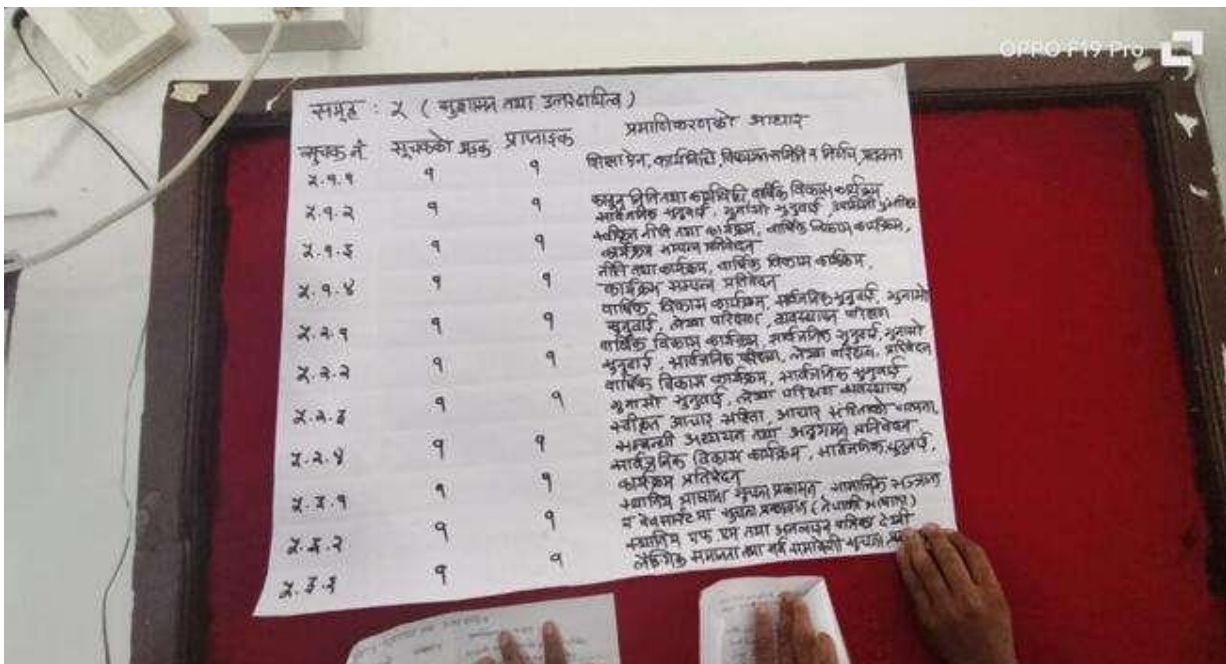 OPPO F19 Pro
समूह : २ ( सुशासन तथा उत्तरदायित्व )
सूचक नं. सूचकको अङ्क प्राप्ताङ्क प्रमाणिकरणको आधार
२.१.१ १ १ शिक्षा ऐन, कार्यविधि,
२.१.२ १ १ वार्षिक विकास कार्यक्रम
सार्वजनिक सुनुवाई, गुनासो सुनुवाई,
२.१.३ १ १ स्वीकृत नीति तथा कार्यक्रम, वार्षिक विकास कार्यक्रम,
कार्यक्रम सम्पन्न प्रतिवेदन
२.१.४ १ १ नीति तथा कार्यक्रम, वार्षिक विकास कार्यक्रम,
कार्यक्रम सम्पन्न प्रतिवेदन
२.२.१ १ १ वार्षिक विकास कार्यक्रम, सार्वजनिक सुनुवाई, गुनासो
सुनुवाई, लेखा परिक्षण, व्यवस्थापन परिक्षण
२.२.२ १ १ वार्षिक विकास कार्यक्रम, सार्वजनिक सुनुवाई, गुनासो
सुनुवाई, सार्वजनिक परिक्षण, लेखा परिक्षण, प्रतिवेदन
२.२.३ १ १ वार्षिक विकास कार्यक्रम, सार्वजनिक सुनुवाई,
गुनासो सुनुवाई, लेखा परिक्षण व्यवस्थापन
२.२.४ १ १ स्वीकृत आचार संहिता, आचार संहिताको पालना,
सम्बन्धी अध्ययन तथा अनुगमन प्रतिवेदन
२.३.१ १ १ सार्वजनिक विकास कार्यक्रम, सार्वजनिक सुनुवाई,
कार्यक्रम प्रतिवेदन
२.३.२ १ १ स्थानिय भाषामा सूचना प्रकाशन, सामाजिक सञ्जाल
र वेवसाईटमा सूचना प्रकाशन
२.३.३ १ १ स्थानिय एफ एम तथा अनलाइन पत्रिका
लैङ्गिक समानता तथा